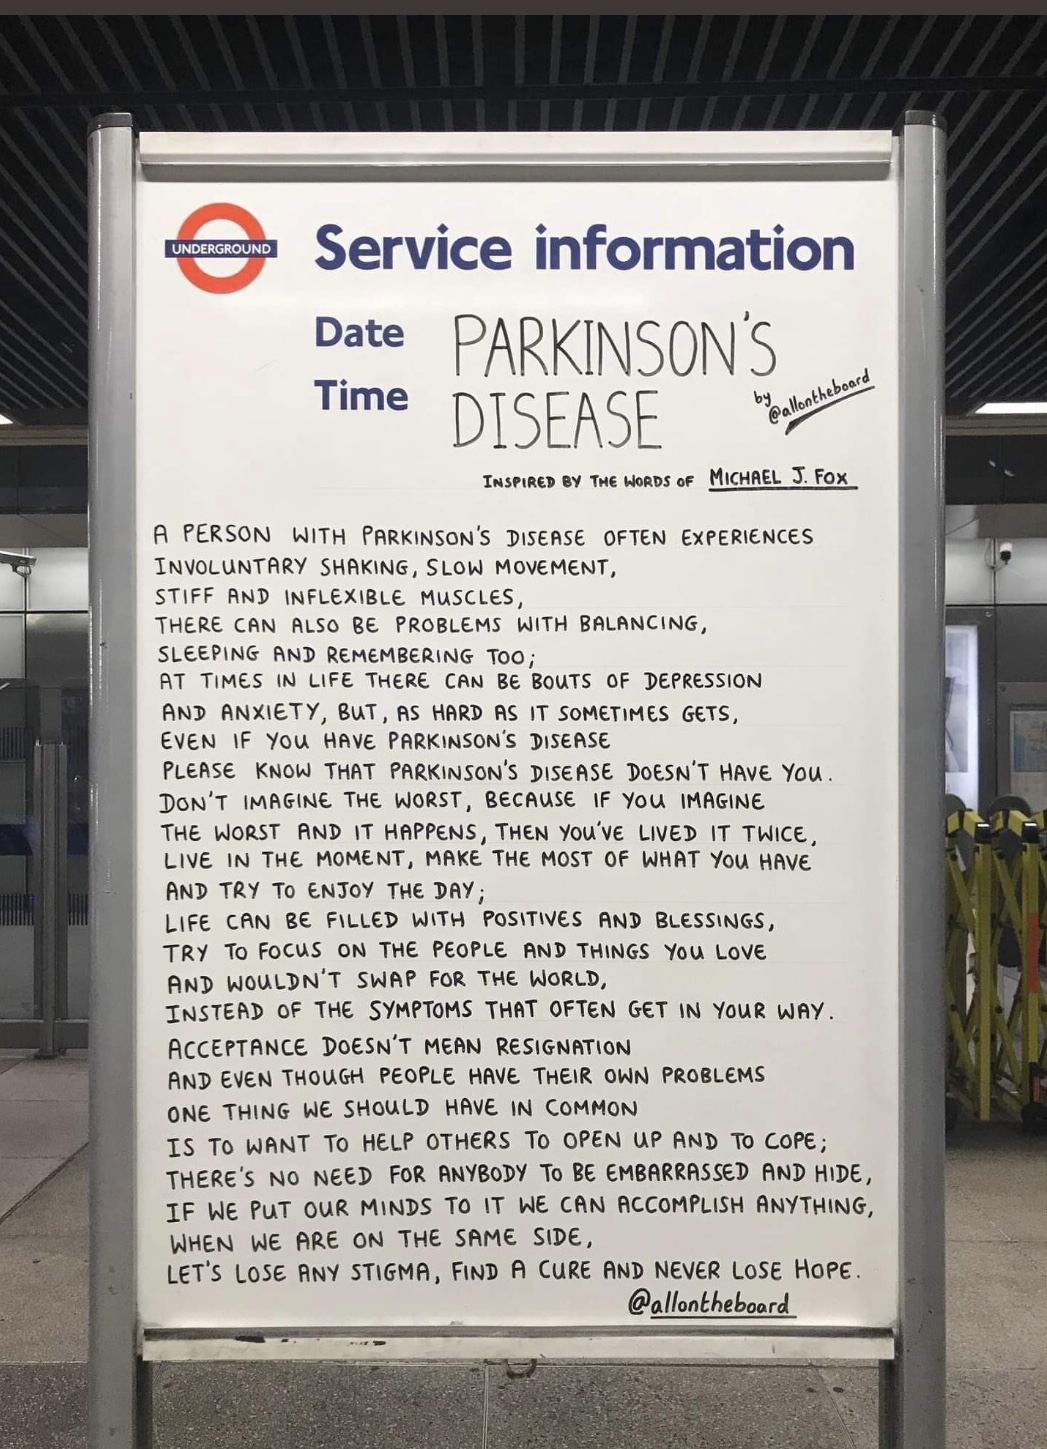 UNDERGROUND
Service information
Date
Time
PARKINSON'S
DISEASE
by
@allontheboard
INSPIRED BY THE WORDS OF MICHAEL J. FOX
A PERSON WITH PARKINSON'S DISEASE OFTEN EXPERIENCES
INVOLUNTARY SHAKING, SLOW MOVEMENT,
STIFF AND INFLEXIBLE MUSCLES,
THERE CAN ALSO BE PROBLEMS WITH BALANCING,
SLEEPING AND REMEMBERING TOO;
AT TIMES IN LIFE THERE CAN BE BOUTS OF DEPRESSION
AND ANXIETY, BUT, AS HARD AS IT SOMETIMES GETS,
EVEN IF YOU HAVE PARKINSON'S DISEASE
PLEASE KNOW THAT PARKINSON'S DISEASE DOESN'T HAVE YOU.
DON'T IMAGINE THE WORST, BECAUSE IF YOU IMAGINE
THE WORST AND IT HAPPENS, THEN YOU'VE LIVED IT TWICE,
LIVE IN THE MOMENT, MAKE THE MOST OF WHAT YOU HAVE
AND TRY TO ENJOY THE DAY;
LIFE CAN BE FILLED WITH POSITIVES AND BLESSINGS,
TRY TO FOCUS ON THE PEOPLE AND THINGS YOU LOVE
AND WOULDN'T SWAP FOR THE WORLD,
INSTEAD OF THE SYMPTOMS THAT OFTEN GET IN YOUR WAY.
ACCEPTANCE DOESN'T MEAN RESIGNATION
AND EVEN THOUGH PEOPLE HAVE THEIR OWN PROBLEMS
ONE THING WE SHOULD HAVE IN COMMON
IS TO WANT TO HELP OTHERS TO OPEN UP AND TO COPE;
THERE'S NO NEED FOR ANYBODY TO BE EMBARRASSED AND HIDE,
IF WE PUT OUR MINDS TO IT WE CAN ACCOMPLISH ANYTHING,
WHEN WE ARE ON THE SAME SIDE,
LET'S LOSE ANY STIGMA, FIND A CURE AND NEVER LOSE HOPE.
@allontheboard